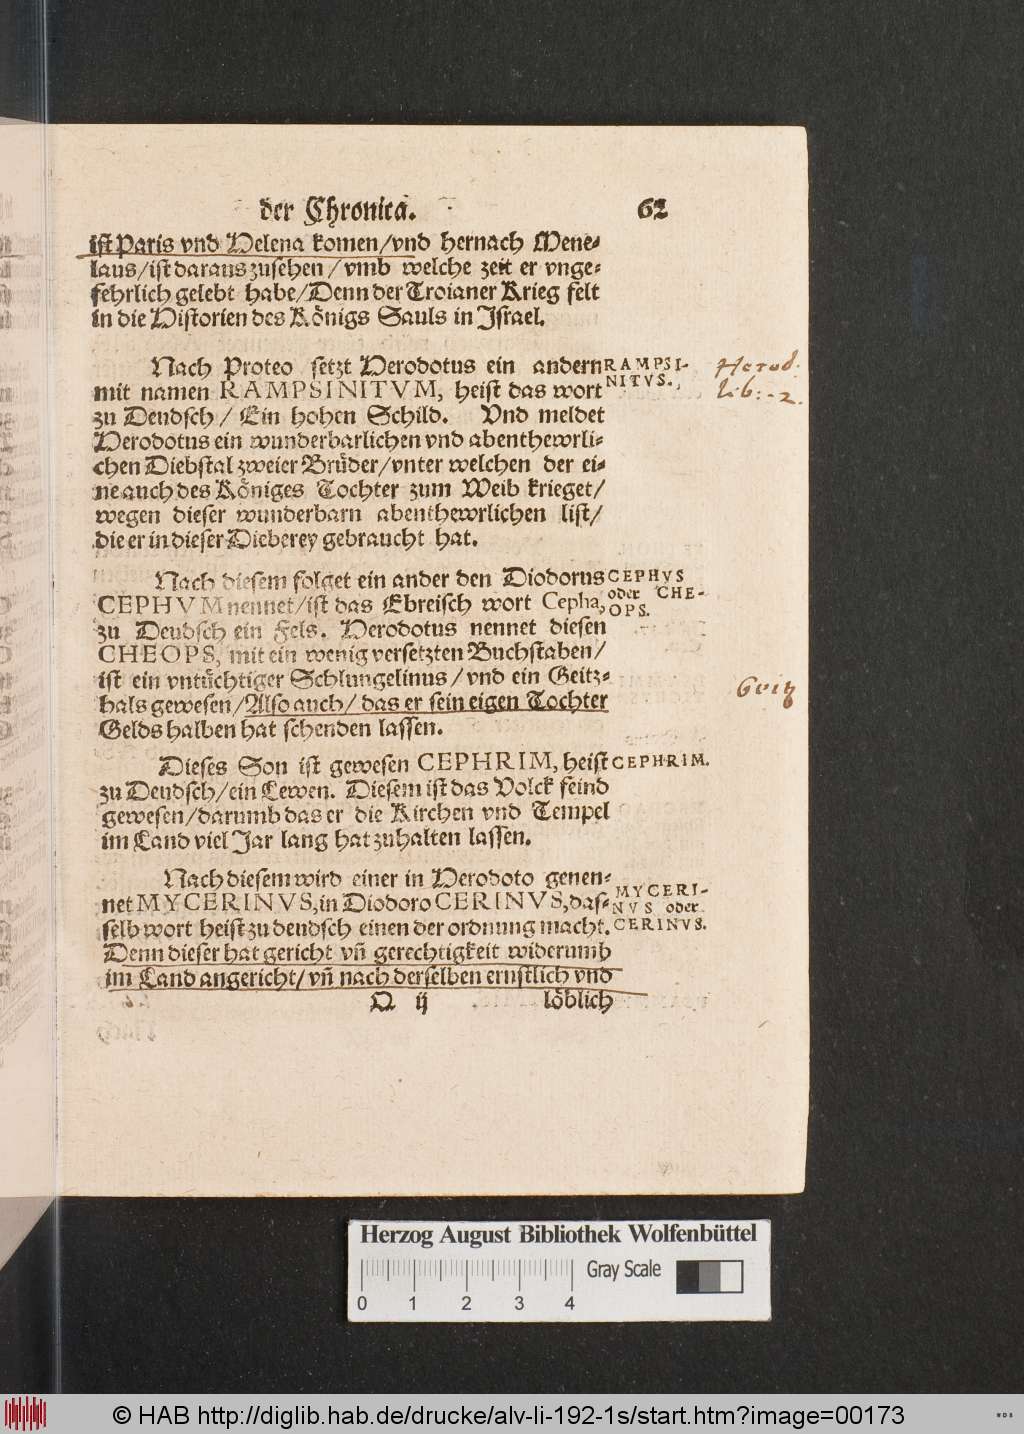 der Chronica. 62
ist Paris vnd Helena komen/vnd hernach Mene-
laus/ist daraus zusehen/vmb welche zeit er vnge-
fehrlich gelebt habe/Denn der Troianer Krieg felt
in die Historien des Königs Sauls in Israel.
Nach Proteo setzt Herodotus ein andern RAMPSI-
mit namen RAMPSINITVM, heist das wort NITVS.
Herod.
lib: 2.
zu Deudsch/ Ein hohen Schild. Vnd meldet
Herodotus ein wunderbarlichen vnd abenthewrli-
chen Diebstal zweier Brüder/vnter welchen der ei-
ne auch des Königes Tochter zum Weib krieget/
wegen dieser wunderbarn abenthewrlichen list/
die er in dieser Dieberey gebraucht hat.
Nach diesem folget ein ander den Diodorus CEPHVS
CEPHVM nennet/ist das Ebreisch wort Cepha, oder CHE-
OPS.
zu Deudsch ein Fels. Herodotus nennet diesen
CHEOPS, mit ein wenig versetzten Buchstaben/
ist ein vntüchtiger Schlungelinus/vnd ein Geitz-
Geitz
hals gewesen/Also auch/ das er sein eigen Tochter
Gelds halben hat schenden lassen.
Dieses Son ist gewesen CEPHRIM, heist CEPHRIM.
zu Deudsch/ein Lewen. Diesem ist das Volck feind
gewesen/darumb das er die Kirchen vnd Tempel
im Land viel Jar lang hat zuhalten lassen.
Nach diesem wird einer in Herodoto genen-
net MYCERINVS, in Diodoro CERINVS, das- MYCERI-
NVS oder
selb wort heist zu deudsch einen der ordnung macht. CERINVS.
Denn dieser hat gericht vñ gerechtigkeit widerumb
im Land angericht/ vñ nach derselben ernstlich vnd
Q ij löblich
Herzog August Bibliothek Wolfenbüttel
Gray Scale
0 1 2 3 4
© HAB http://diglib.hab.de/drucke/alv-li-192-1s/start.htm?image=00173